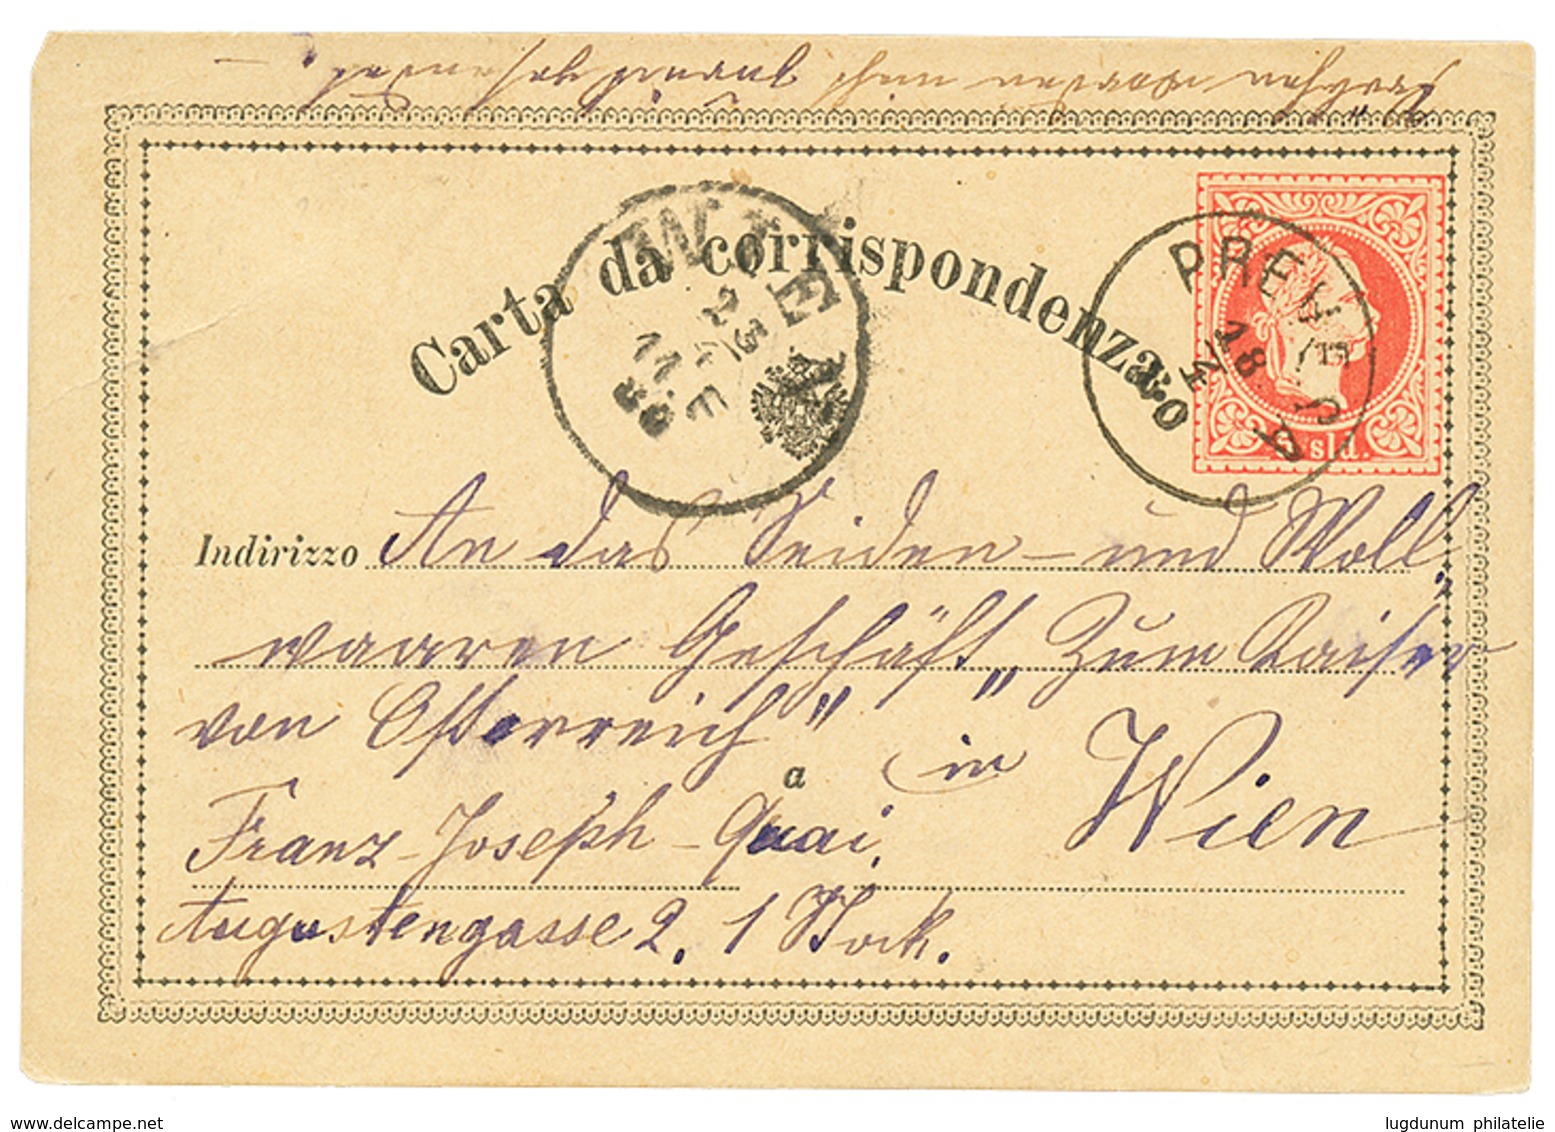 Proben werden nicht zurückgesendet.
Carta da corrispondenza.
PREVESA
18
WIEN
Indirizzo An das Seiden- und Woll
waaren Geschäft „Zum Kaiser
von Österreich"
a in Wien
Franz-Joseph-Quai,
Augustengasse 2, 1 Stock.
sld.
www.delcampe.net
lugdunum philatelie